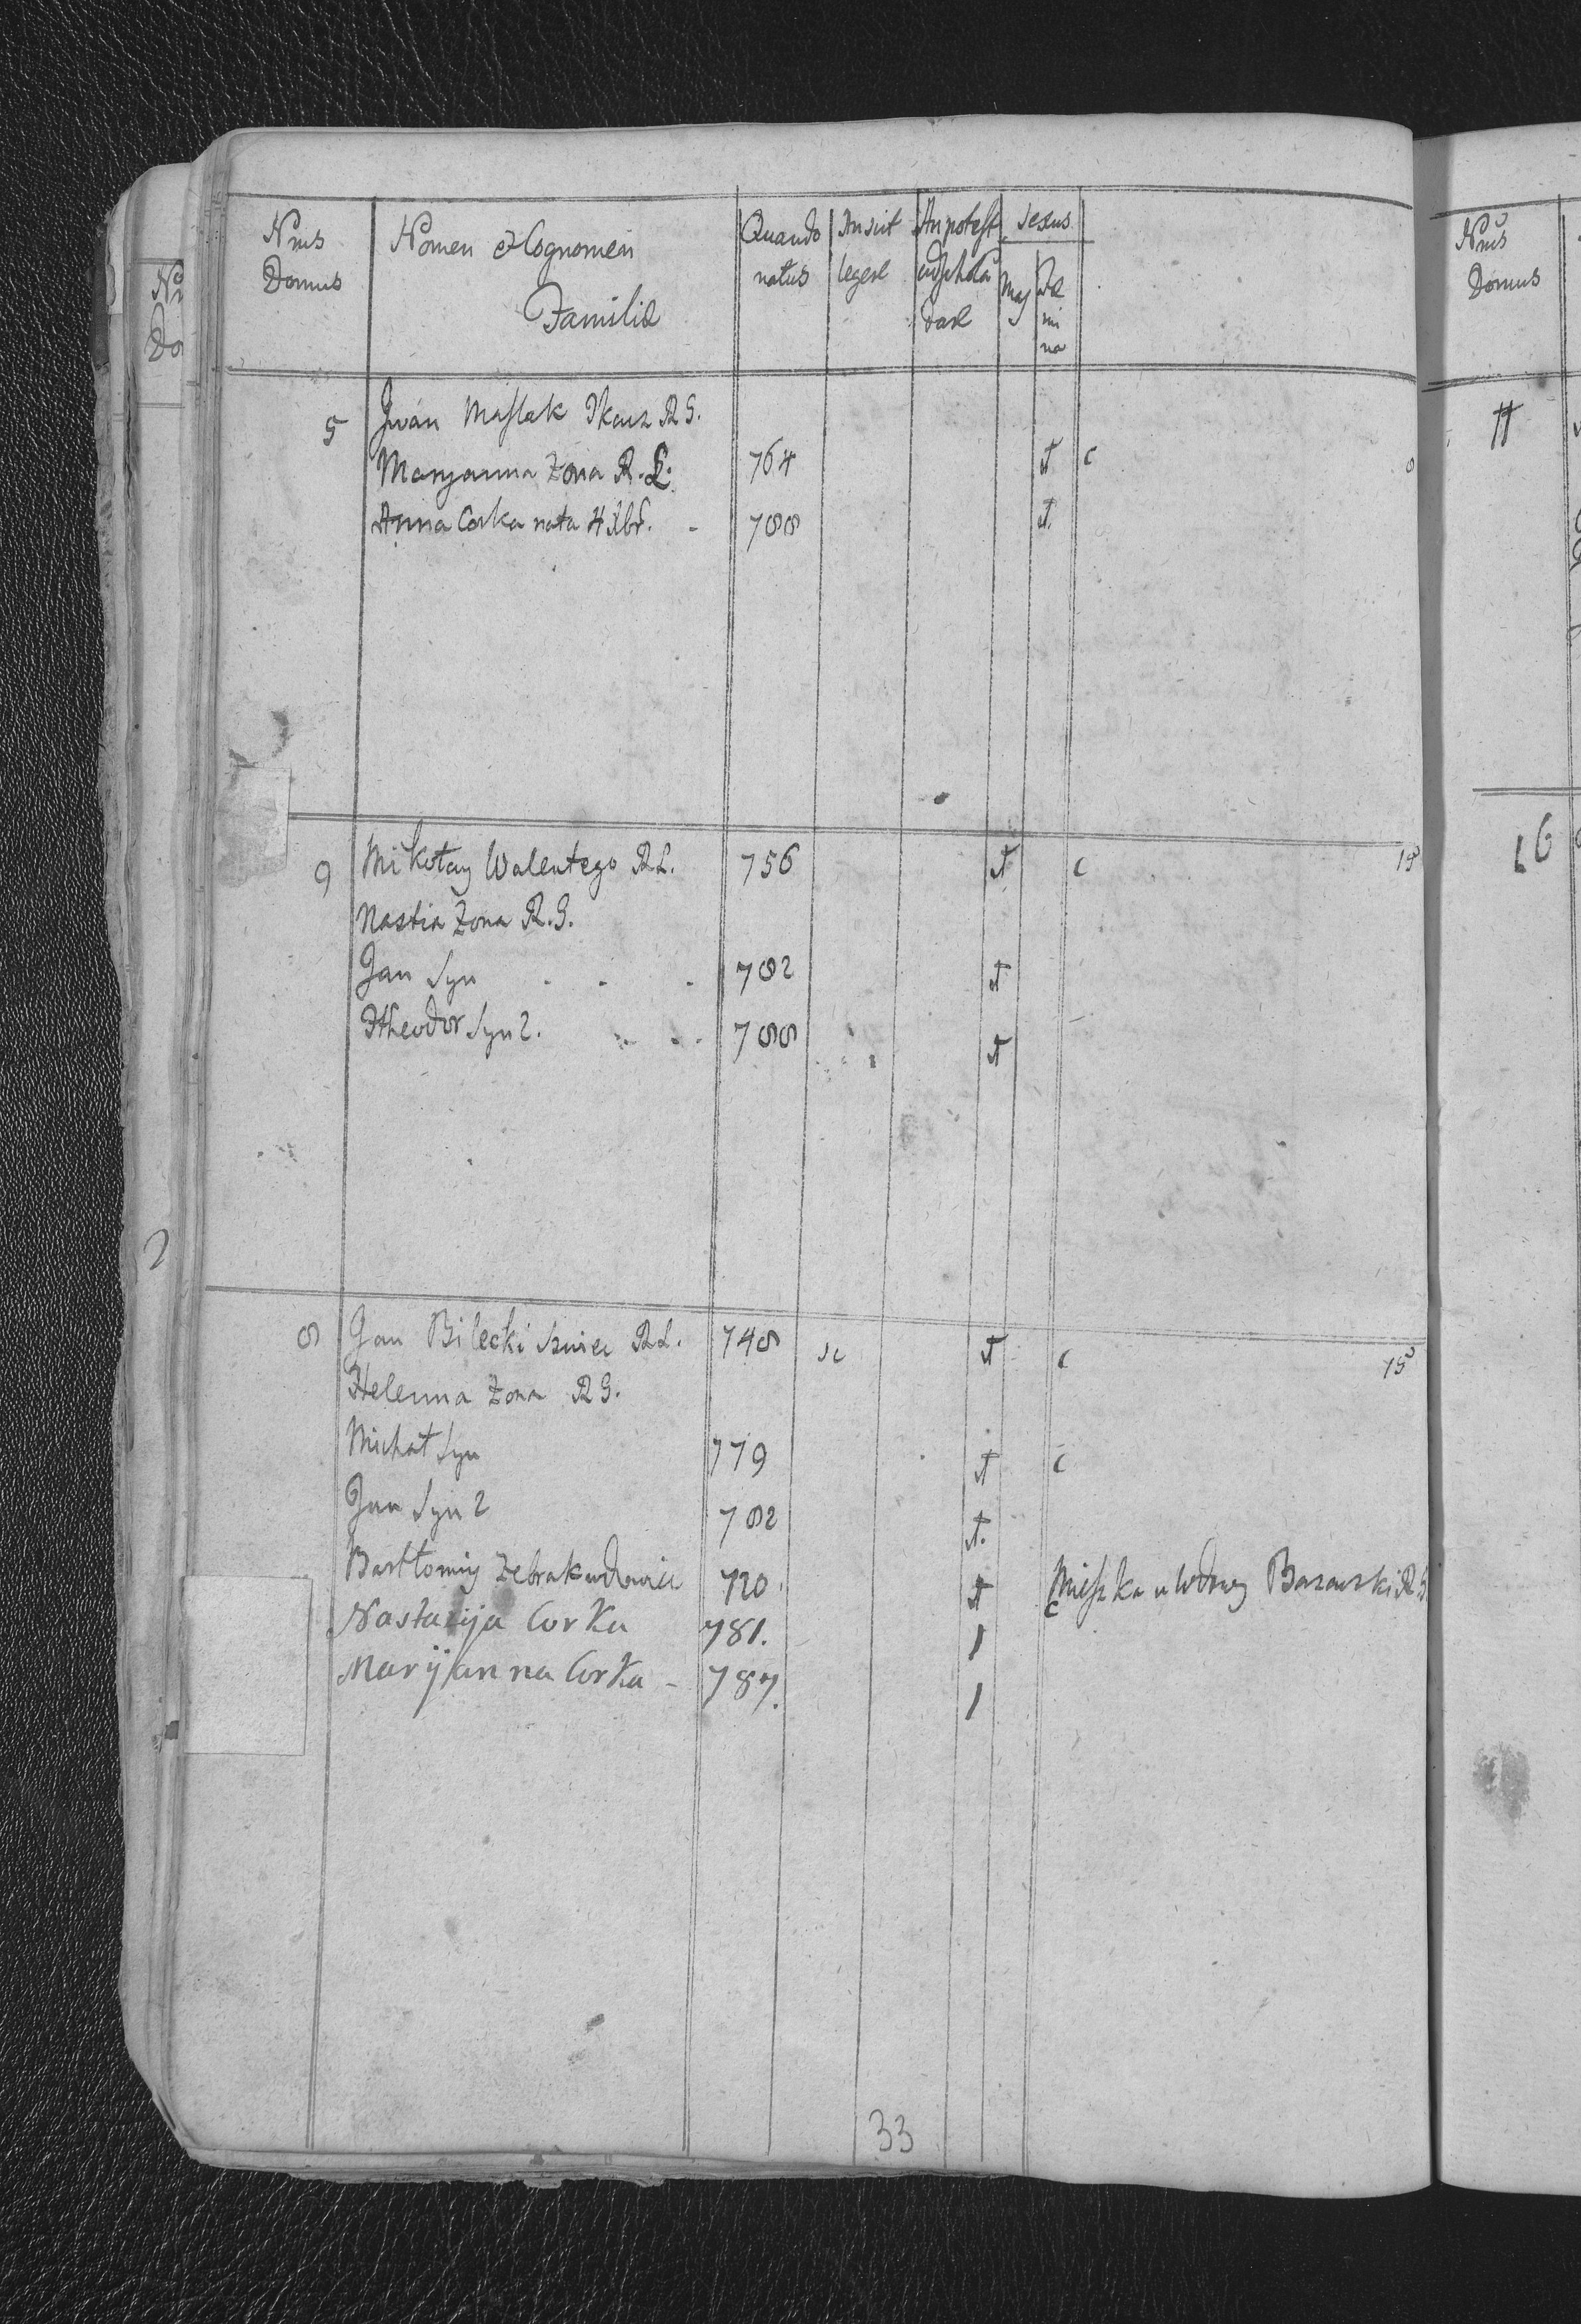 Nrus Domus
Nomen et Cognomen Familiæ
Quando natus
An scit legere
An potest
dare
Sexus
Mas
Fe mi na
5
Jwan Maslak Tkacz R G.
Maryanna Zona R. L. 764 1 c
Anna Corka nata 4 Xbr. - 788 1.
9 Mikołay Walentego R L. 756 1 c 15
Nastia Zona R. G.
Jan Syn . . . 782 1
Theodor Syn 2. . . . 788 1
8 Jan Bilecki Szwiec R L. 748 sc 1 c 15
Helenna Zona R G.
Michał Syn 779 1 c
Jan Syn 2 782 1.
Bartłomiy Zebrak wdowiec 720 1 c Mieszka u Wdowy Barawski R G
Nastacija Corka 781. 1
Maryanna Corka - 787. 1
33
Nrus Domus
11
16
2